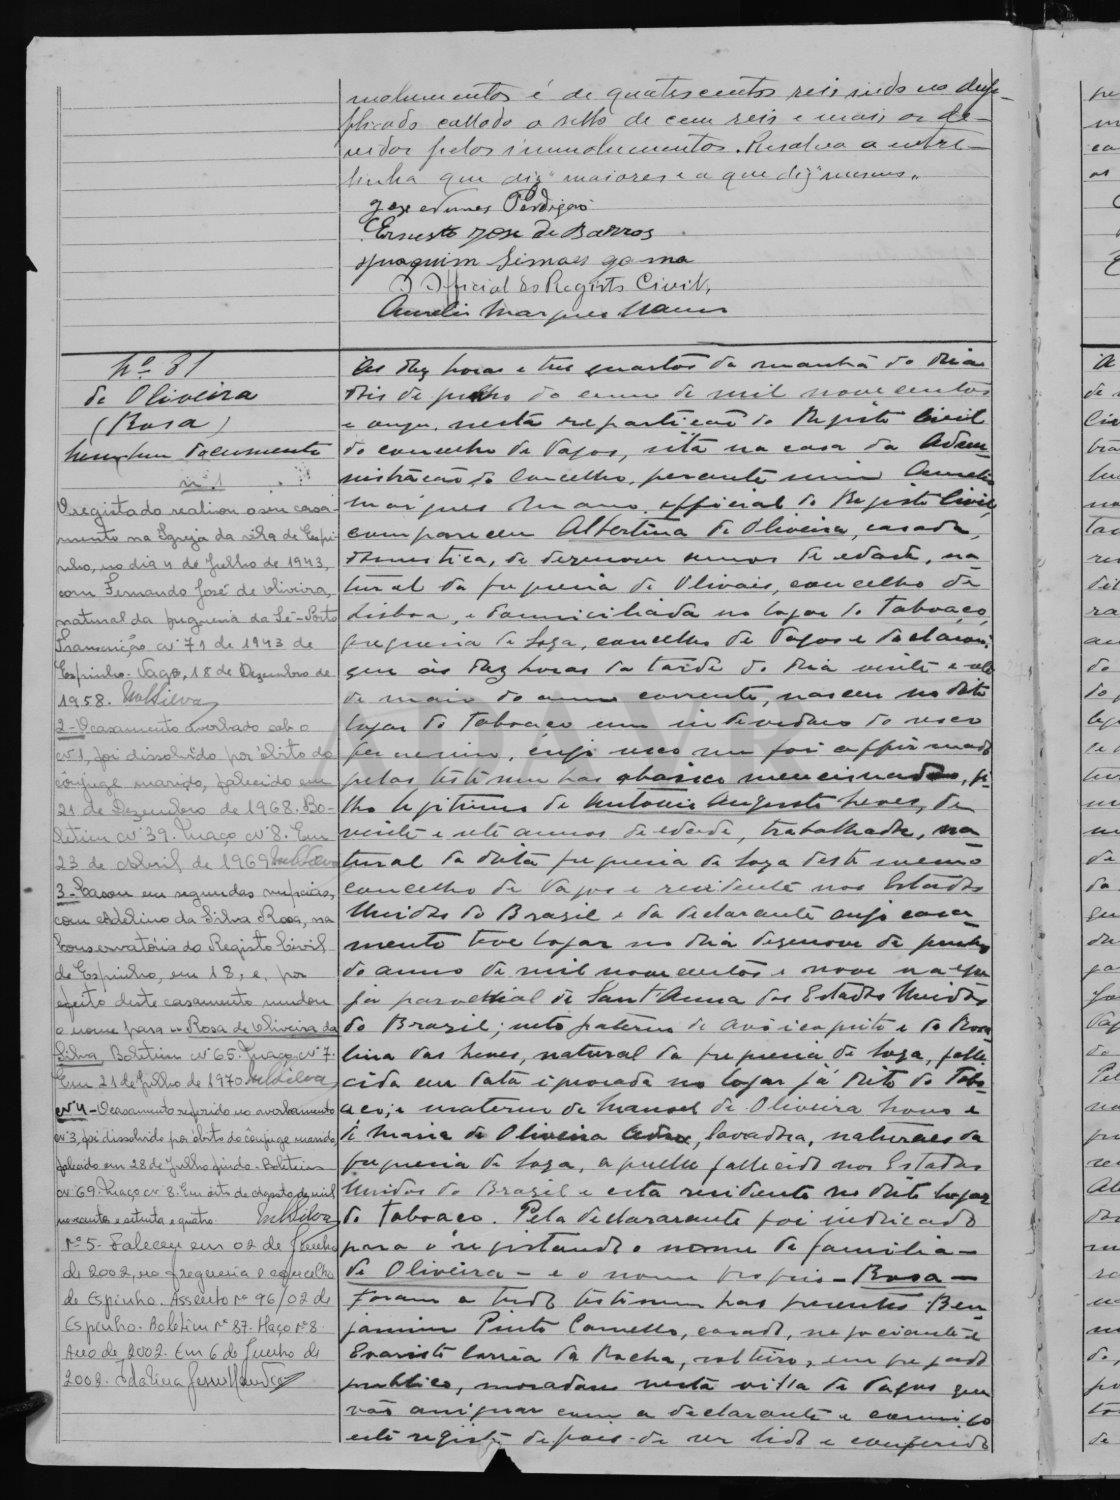 molumentos é de quatrocentos reis sendo no du-
plicado collado o sello de cem reis e mais os de-
vidos pelos immolumentos. Resalva a entre-
linha que diz "maiores e a que diz "mesmos"
José Nunes Perdigão
Ernesto José de Barros
Joaquim Simões Gama
O Official do Registo Civil,
Aurelio Marques Mano
Nº 81
de Oliveira
(Rosa)
Nenhum documento
nº 1
O registado realizou o seu casa-
mento na Igreja da vila de Espi-
nho, no dia 4 de Julho de 1943,
com Fernando José de Oliveira,
natural da freguesia da Sé-Porto
Transcrição nº 71 de 1943 de
Espinho. Vagos, 18 de Dezembro de
1958.
2-O casamento averbado sob o
nº 1, foi dissolvido por óbito do
cônjuge marido, falecido em
21 de Dezembro de 1968. Bo-
letim nº 39. Maço nº 8. Em
23 de Abril de 1969
3-Casou em segundas nupcias,
com Adelino da Silva Rosa, na
Conservatória do Registo Civil
de Espinho, em 18, e, por
efeito deste casamento mudou
o nome para o Rosa de Oliveira da
Silva. Boletim nº 65. Maço nº 7.
Em 21 de Julho de 1970
nº 4-O casamento referido no averbamento
nº 3, foi dissolvido por óbito do cônjuge marido,
falecido em 28 de Julho findo. Boletim
nº 69. Maço nº 8. Em oito de Agosto de mil
novecentos e setenta e quatro.
Nº 5- Faleceu em 02 de Junho
de 2002, na freguesia e concelho
de Espinho. Assento nº 96/02 de
Espinho. Boletim nº 87. Maço nº 8.
Ano de 2002. Em 6 de Junho de
2002.
Ás dez horas e tres quartos da manhã do dia
dois de julho do anno de mil nove centos
e onze, nesta repartição do Registo Civil
do concelho de Vagos, sita na casa da Admi-
nistração do Concelho, perante mim Aurelio
Marques Mano, official do Registo Civil,
compareceu Albertina de Oliveira, casada,
domestica, de dezenove annos de edade, na
tural da freguesia de Olivais, concelho de
Lisboa, e domiciliada no lugar do Taboaço,
freguesia de Soza, concelho de Vagos e declarou:
que ás dez horas da tarde do dia vinte e sete
de maio do anno corrente, nasceu no dito
lugar do Taboaço um individuo do sexo
femenino, cujo sexo me foi affirmado
pelas testemunhas abaixo mencionadas, fi-
lho legitimo de Antonio Augusto Neves, de
vinte e sete annos de edade, trabalhador, na
tural da dita freguesia de Soza deste mesmo
concelho de Vagos e residente nos Estados
Unidos do Brazil e da declarante cujo casa
mento teve lugar no dia dezenove de junho
do anno de mil nove centos e nove na egre
ja parochial de Sant'Anna dos Estados Unidos
do Brazil; neto paterno de avô incognito e de Rosa
lina das Neves, natural da freguesia de Soza, falle
cida em data ignorada no lugar já dito do Tabo
aço; e materno de Manoel de Oliveira Novo e
de Maria de Oliveira, lavadora, naturaes da
freguesia de Soza, aquelle fallecido nos Estados
Unidos do Brazil e esta residente no dito lugar
do Taboaço. Pela declararante foi indicado
para o registando o nome de familia-
de Oliveira - e o nome proprio - Rosa -
Foram a tudo testemunhas presentes Ben
jamim Pinto Camello, casado, negociante e
Evaristo Corrêa da Rocha, solteiro, empregado
publico, moradores nesta villa de Vagos que
vão assignar com a declarante e commigo
este registo depois de ser lido e conferido